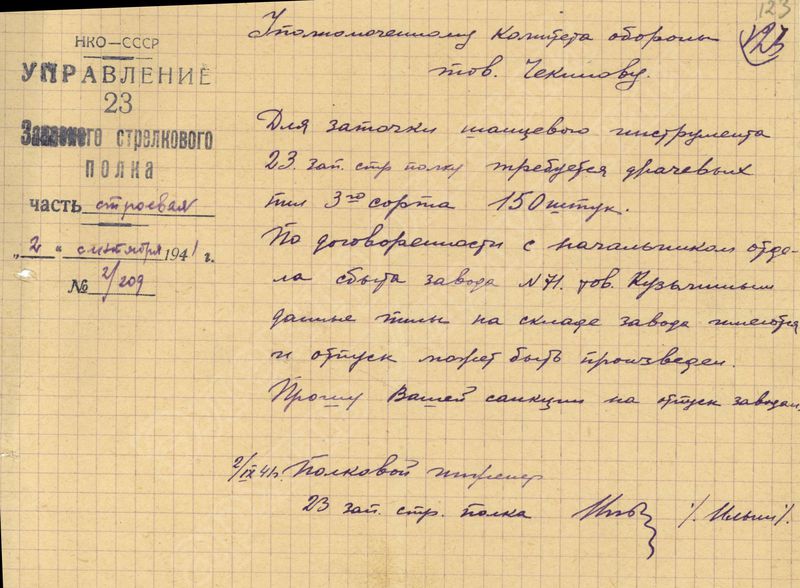 123
123
НКО—СССР
УПРАВЛЕНИЕ
23
Запасного стрелкового
ПОЛКА
часть строевая
„2" сентября 1941 г.
№ 2/209
Уполномоченному Комитета обороны
тов. Чекинову.
Для заточки шанцевого инструмента
23 зап. стр полку требуется драчевых
пил 3го сорта 150 штук.
По договоренности с начальником отде-
ла сбыта завода N 71. тов. Кузьминым
данные пилы на складе завода имеются
и отпуск может быть произведен.
Прошу Вашей санкции на отпуск заводом.
2/IX 41г. Полковой инженер
23 зап. стр. полка /. Ильин /.